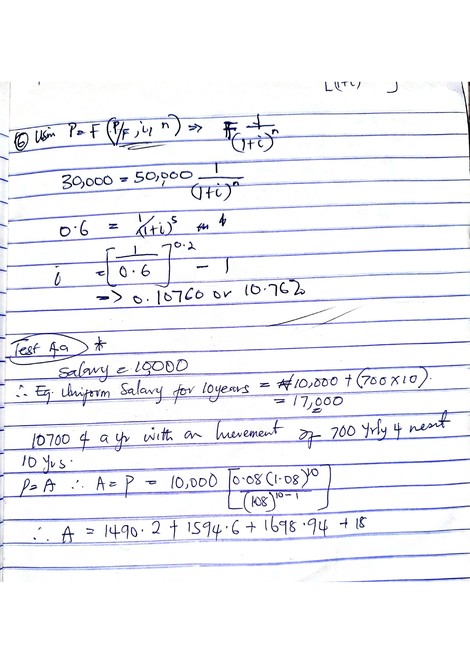 [(1+i) ]
⑥ Using P = F (P/F, i, n) => F 1/(1+i)^n
30,000 = 50,000 1/(1+i)^n
0.6 = 1/(1+i)^5
i = [1/0.6]^0.2 - 1
=> 0.10760 or 10.76%
Test 4a *
Salary = 10,000
∴ Eq. Uniform Salary for 10years = ₦10,000 + (700×10).
= 17,000
10700 4 a yr with an Increment of 700 Yrly 4 next
10 yrs.
P=A ∴ A=P = 10,000 [0.08(1.08)^10 / (108)^10-1]
∴ A = 1490.2 + 1594.6 + 1698.94 + 18